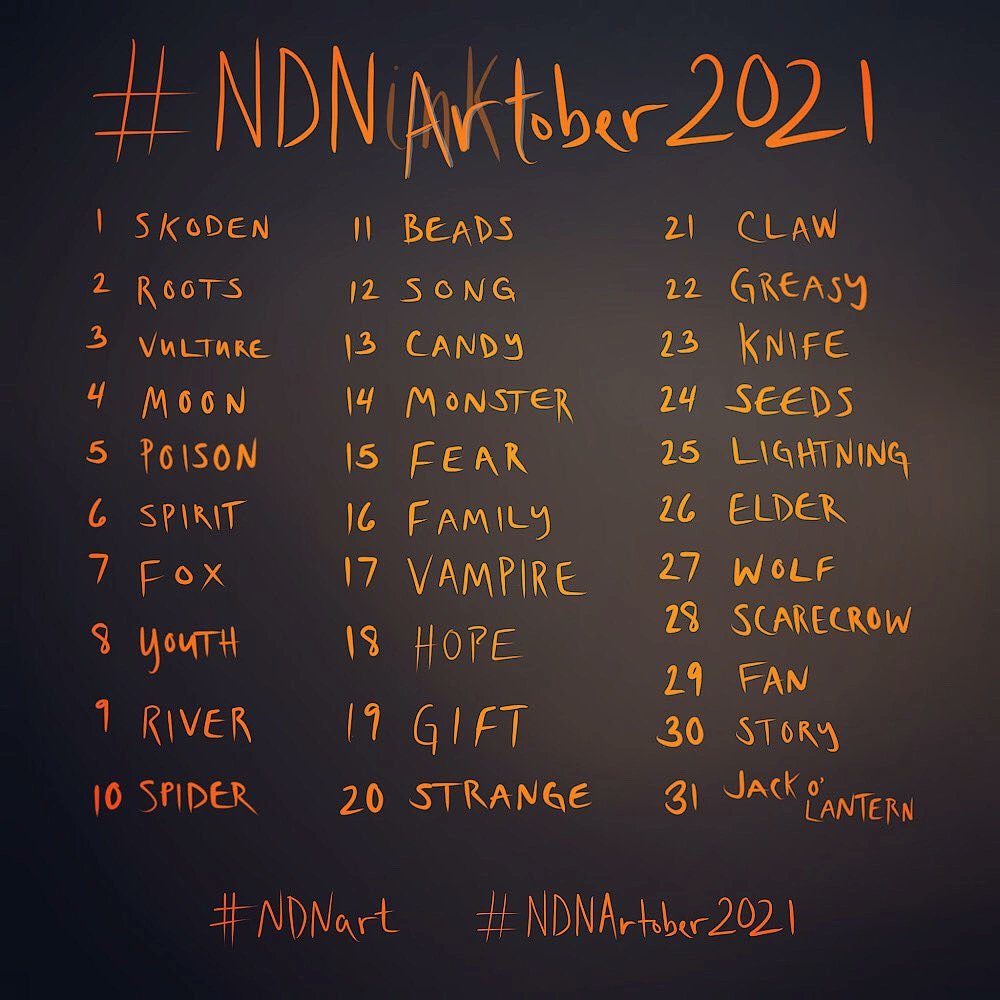 #NDNArtober2021
1 SKODEN
2 ROOTS
3 VULTURE
4 MOON
5 POISON
6 SPIRIT
7 FOX
8 YOUTH
9 RIVER
10 SPIDER
11 BEADS
12 SONG
13 CANDY
14 MONSTER
15 FEAR
16 FAMILY
17 VAMPIRE
18 HOPE
19 GIFT
20 STRANGE
21 CLAW
22 GREASY
23 KNIFE
24 SEEDS
25 LIGHTNING
26 ELDER
27 WOLF
28 SCARECROW
29 FAN
30 STORY
31 JACK O'
LANTERN
#NDNart #NDNArtober2021